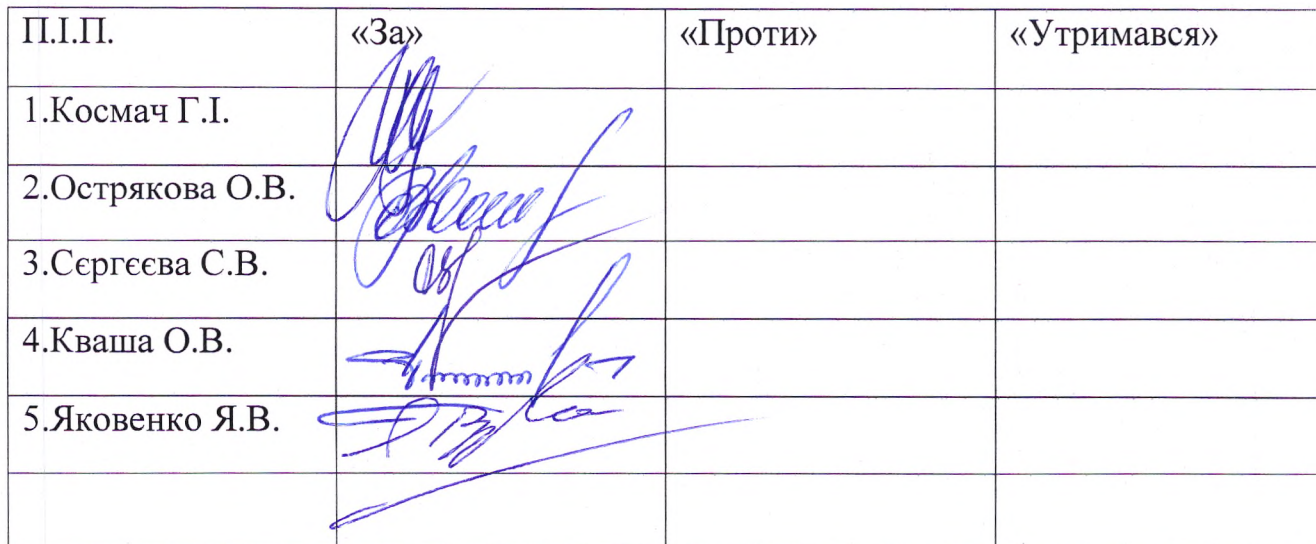 П.І.П. «За» «Проти» «Утримався»
1.Космач Г.І.
2.Острякова О.В.
3.Сєргєєва С.В.
4.Кваша О.В.
5.Яковенко Я.В.